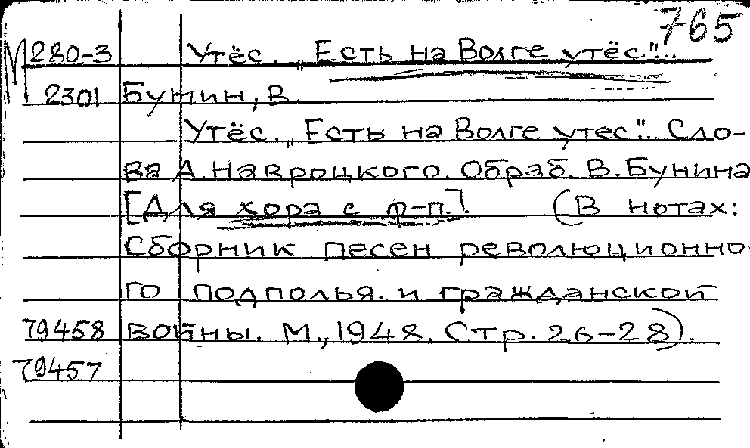 765
М280-3 Утёс. „Есть на Волге утёс."..
2301 Бунин, В.
Утёс. „Есть на Волге утес". Сло-
ва А. Навроцкого. Обраб. В. Бунина
[Для хора с ф-п.]. (В нотах:
Сборник песен революционно-
го подполья и гражданской
79458 войны. М., 1948. Стр. 26-28).
79457